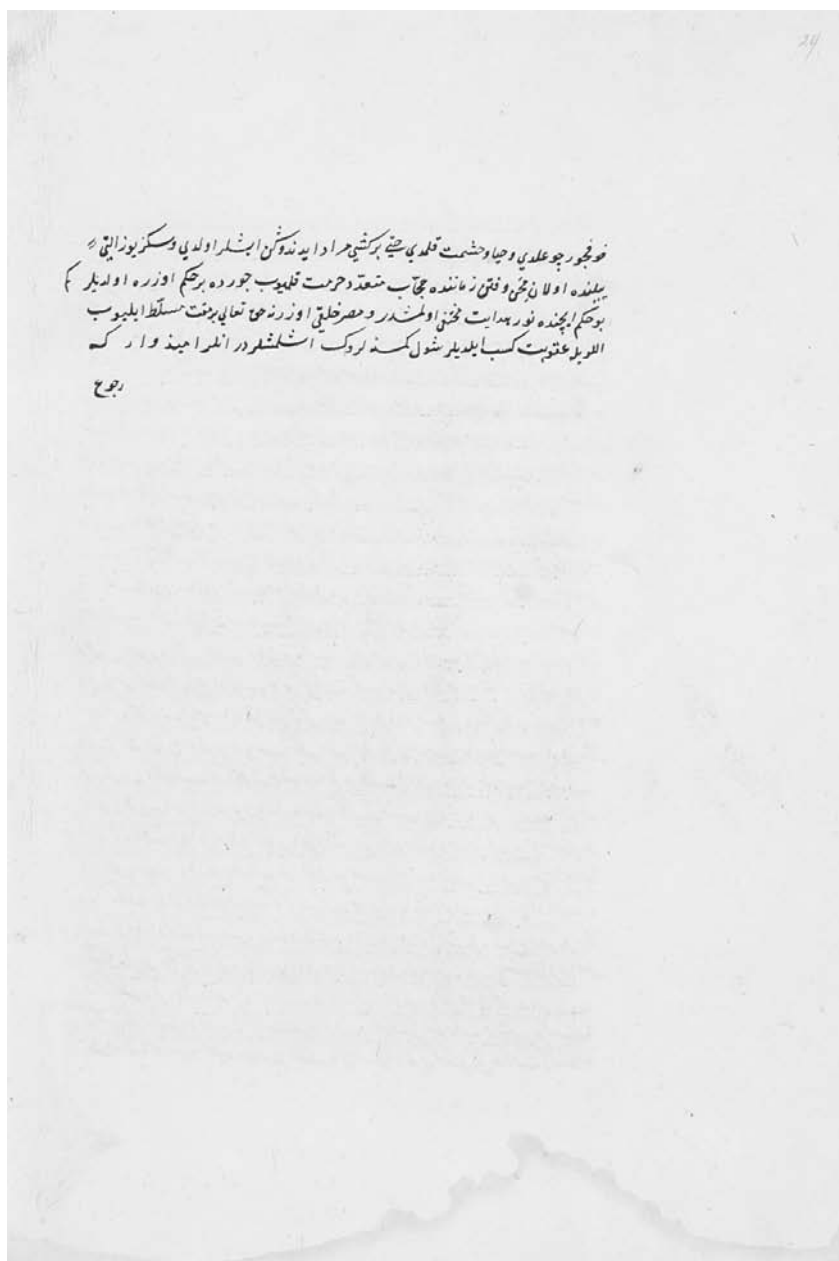 24
و فجور چوغلدي و حيا و حشمت قلمدي حتي بر كشي مراد ايدندوكن ايشلر اولدي و سكز يوز التي
ييلنده اولان محن و فتن زماننده متعدد حرمت قلميوب جورده بر حكم اوزره اولديلر كه
بو حكم ايچنده نور هدايت مختفي اولمشدر و مصر خلقي اوزرنه حق تعالي بر مقت مسلّط ايليوب
اللريله عقوبت كسب ايلديلر شول كمسنه لردك اشلمشلردر انلر اميد وار كه
رجوع